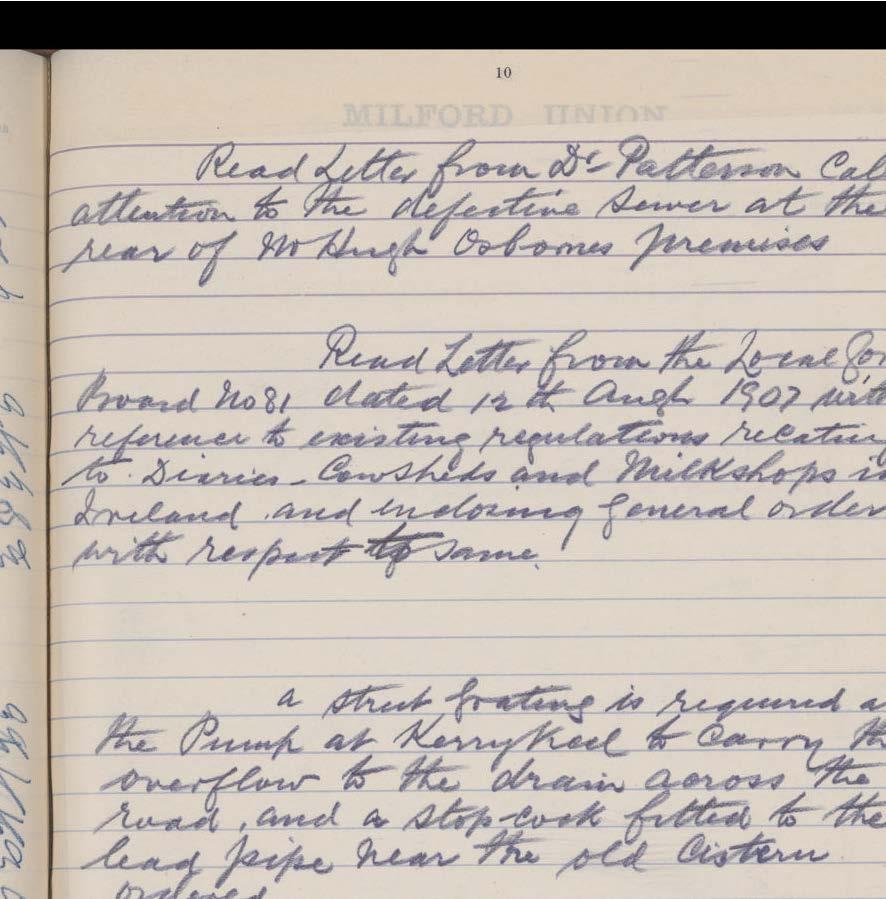 10
MILFORD UNION
Read Letter from Dr Patterson Cal
attention to the defective Sewer at the
rear of Mr Hugh Osbornes premises
Read Letter from the Local Gov
Board No 81 dated 12th Augt 1907 with
reference to existing regulations relating
to Diaries - Cowsheds and Milkshops in
Ireland and enclosing General order
with respect to same.
a street grating is required a
the Pump at Kerrykeel to Carry th
overflow to the drain across the
road, and a stop-cock fitted to the
lead pipe near the old Cistern
Ordered